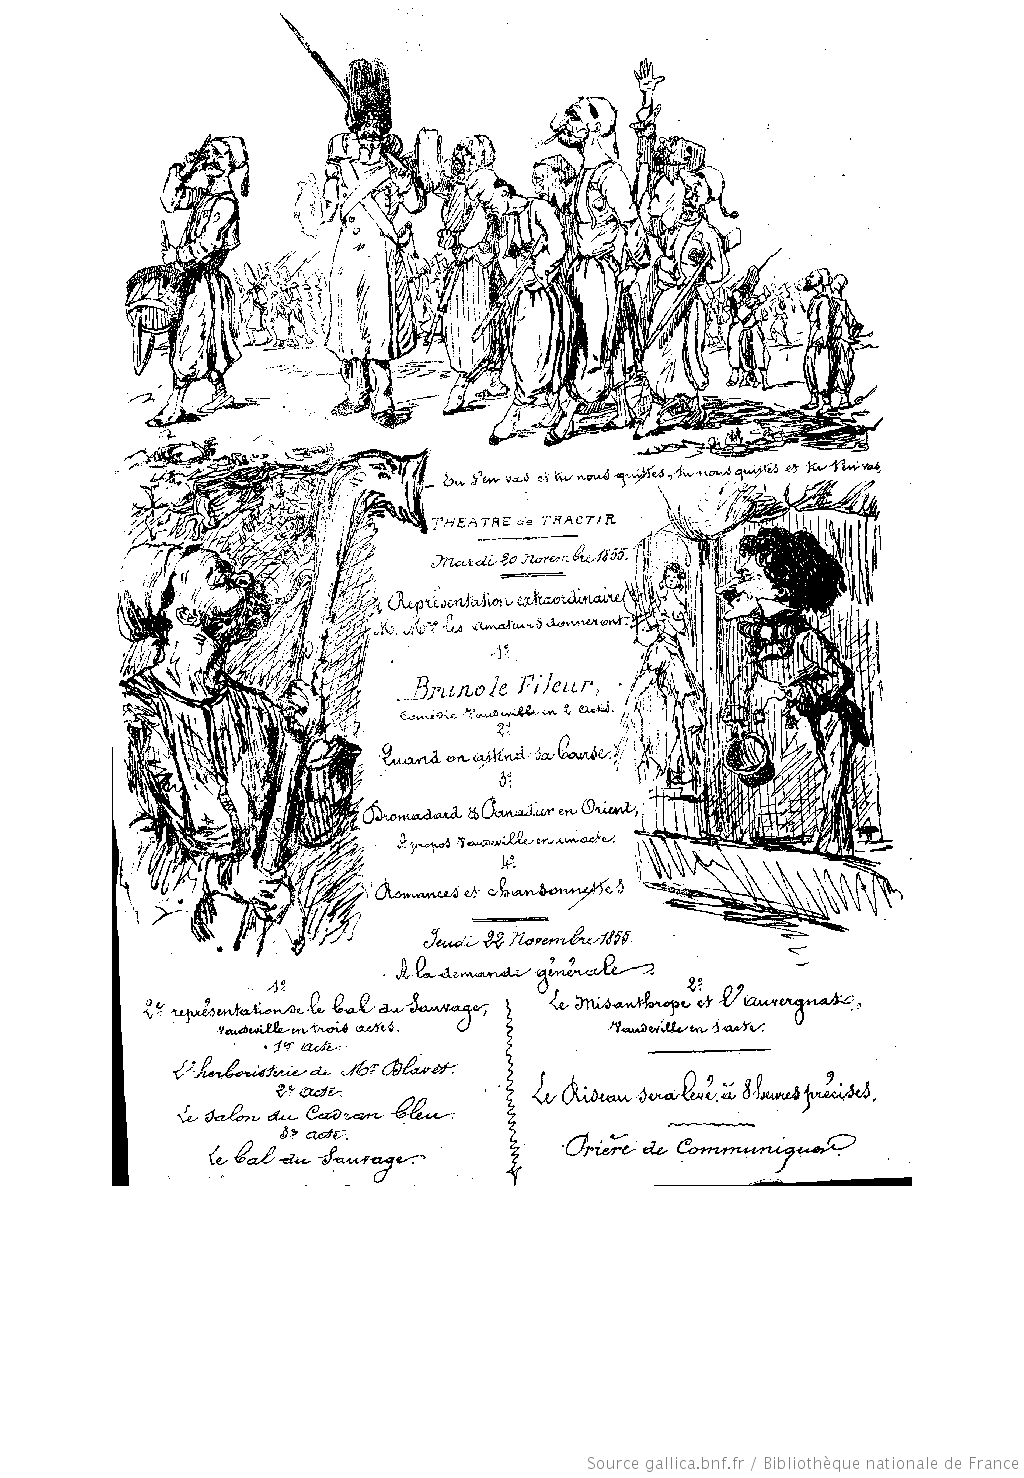 Tu t'en vas et tu nous quittes, tu nous quittes et tu t'en vas
THEATRE de TRACTIR
Mardi 20 Novembre 1855.
Représentation extraordinaire
M. Mrs les amateurs donneront:
1º
Bruno le Fileur,
Comédie Vaudeville en 2 actes.
2º
Quand on attend sa bourse.
3º
Dromadard & Panadier en Orient,
à propos Vaudeville en un acte.
4º
Romances et chansonnettes
Jeudi 22 Novembre 1855.
A la demande générale
1º
2e représentation de le bal du Sauvage,
Vaudeville en trois actes.
1er acte.
L'herboristerie de Mr Blavet.
2e acte.
Le salon du Cadran bleu.
3e acte.
Le bal du Sauvage.
2º
Le Misanthrope et l'auvergnat,
Vaudeville en 1 acte.
Le Rideau sera levé à 8 heures précises.
Prière de Communiquer
Source gallica.bnf.fr / Bibliothèque nationale de France